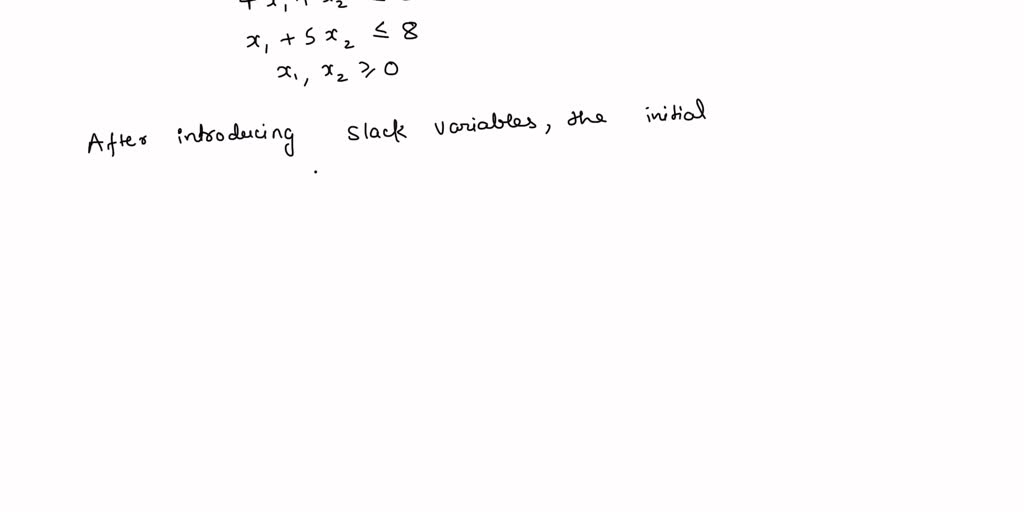 x₁ + 5x₂ ≤ 8
x₁, x₂ ≥ 0
After introducing slack variables, the initial